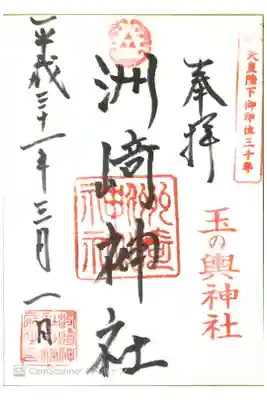 天皇陛下御即位三十年
奉拝
玉の輿神社
洲崎神社
平成三十一年三月一日
CS CamScanner